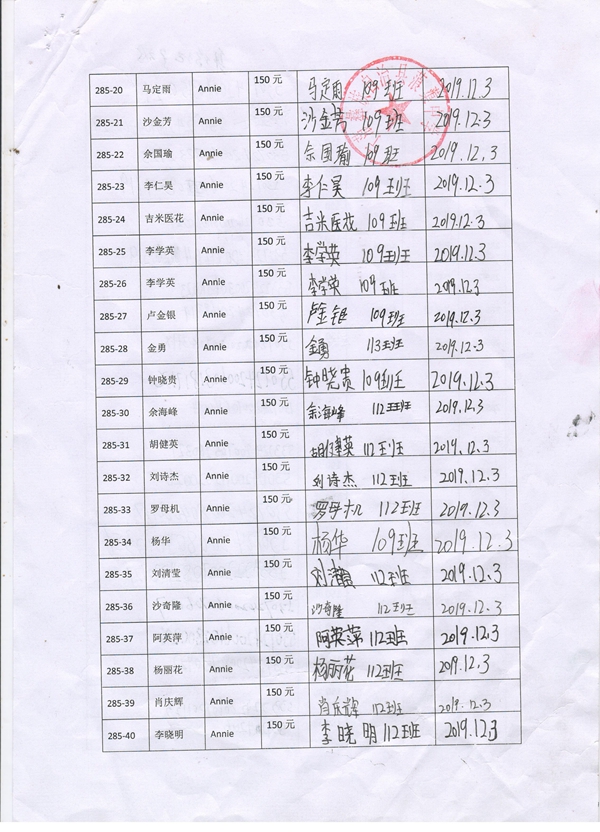 285-20 马定雨 Annie 150 元 马定雨 109班 2019.12.3
285-21 沙金芳 Annie 150 元 沙金芳 109班 2019.12.3
285-22 余国瑜 Annie 150 元 余国瑜 109班 2019.12.3
285-23 李仁昊 Annie 150 元 李仁昊 109班 2019.12.3
285-24 吉米医花 Annie 150 元 吉米医花 109班 2019.12.3
285-25 李学英 Annie 150 元 李学英 109班 2019.12.3
285-26 李学英 Annie 150 元 李学荣 109班 2019.12.3
285-27 卢金银 Annie 150 元 卢金银 109班 2019.12.3
285-28 金勇 Annie 150 元 金勇 113班 2019.12.3
285-29 钟晓贵 Annie 150 元 钟晓贵 109班 2019.12.3
285-30 余海峰 Annie 150 元 余海峰 112班 2019.12.3
285-31 胡健英 Annie 150 元 胡健英 112班 2019.12.3
285-32 刘诗杰 Annie 150 元 刘诗杰 112班 2019.12.3
285-33 罗母机 Annie 150 元 罗母机 112班 2019.12.3
285-34 杨华 Annie 150 元 杨华 109班 2019.12.3
285-35 刘清莹 Annie 150 元 刘清 112班 2019.12.3
285-36 沙奇隆 Annie 150 元 沙奇隆 112班 2019.12.3
285-37 阿英萍 Annie 150 元 阿英萍 112班 2019.12.3
285-38 杨丽花 Annie 150 元 杨丽花 112班 2019.12.3
285-39 肖庆辉 Annie 150 元 肖庆辉 112班 2019.12.3
285-40 李晓明 Annie 150 元 李晓明 112班 2019.12.3